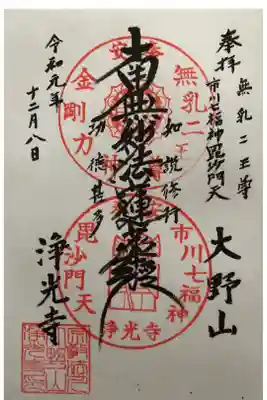 奉拝
無乳二王尊
市川七福神毘沙門天
大野山
如説修行
南無妙法蓮華経
功徳甚多
浄光寺
令和元年
十二月八日
無乳二王
金剛力
市川七福神
毘沙門天
浄光寺